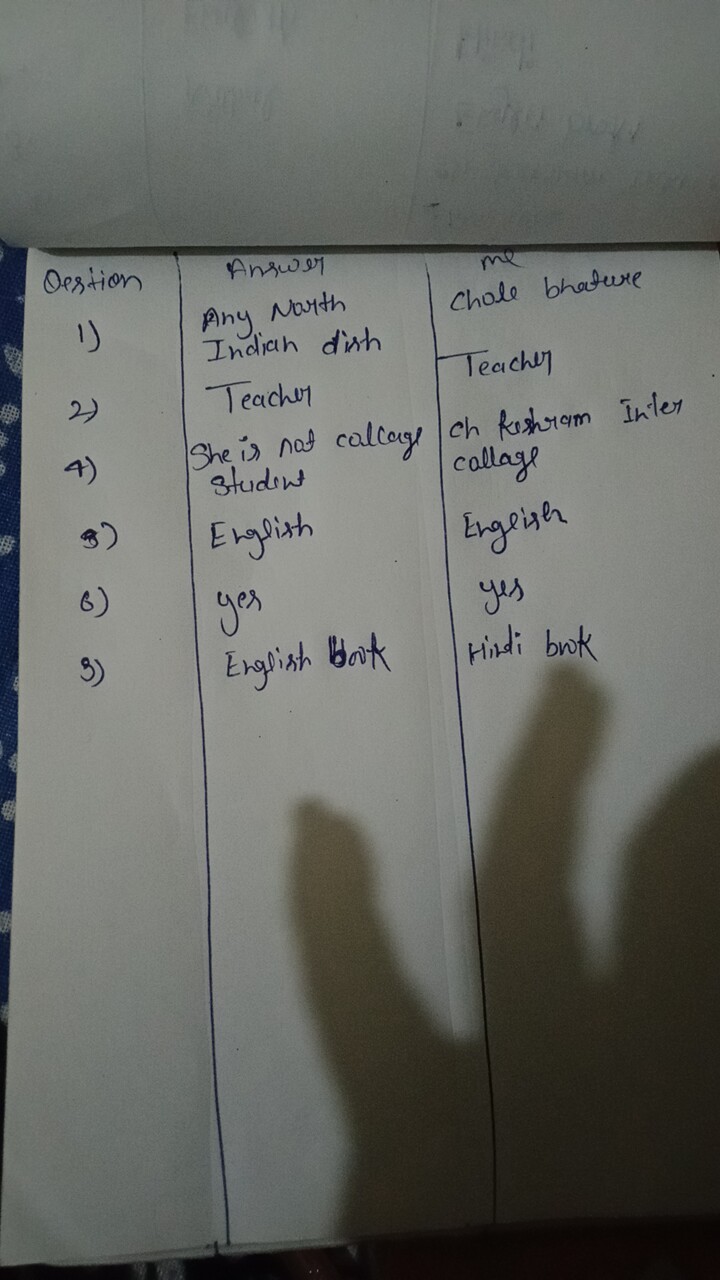 Qestion Answer me
1) Any North Indian dish Chole bhature
2) Teacher Teacher
4) She is not collage student ch Keshram Inter collage
5) English English
6) yes yes
3) English book Hindi book